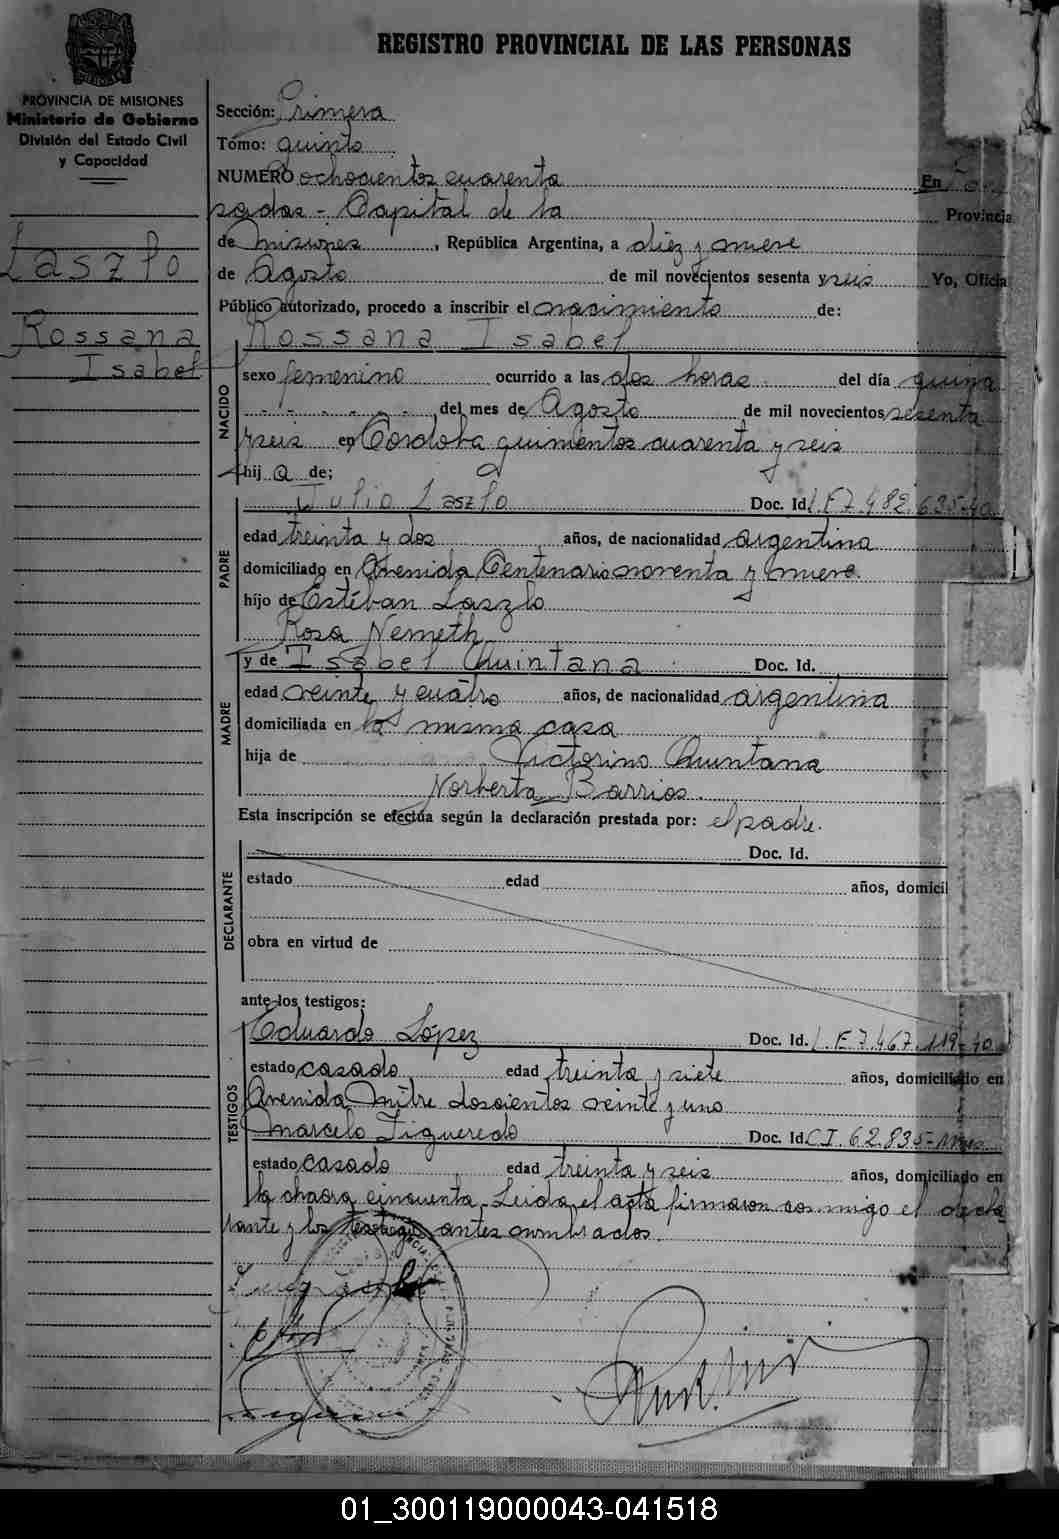 REGISTRO PROVINCIAL DE LAS PERSONAS
PROVINCIA DE MISIONES
Ministerio de Gobierno
División del Estado Civil
y Capacidad
Laszlo
Rossana
Isabel
Sección: Primera
Tomo: quinto
NUMERO ochocientos cuarenta En Po
sadas - Capital de la Provincia
de Misiones, República Argentina, a diez y nueve
de Agosto de mil novecientos sesenta y seis Yo, Oficia
Público autorizado, procedo a inscribir el nacimiento de:
Rossana Isabel
NACIDO
sexo femenino ocurrido a las dos horas del día quin
del mes de Agosto de mil novecientos sesenta
y seis en Cordoba quinientos cuarenta y seis
hij a de;
PADRE
Julio Laszlo Doc. Id. L.E 7.482.635-40
edad treinta y dos años, de nacionalidad argentina
domiciliado en Avenida Centenario noventa y nueve.
hijo de Estéban Laszlo
Rosa Nemeth
MADRE
y de Isabel Quintana Doc. Id.
edad veinte y cuatro años, de nacionalidad argentina
domiciliada en la misma casa
hija de Victorino Quintana
Norberta Barrios.
Esta inscripción se efectúa según la declaración prestada por: el padre.
DECLARANTE
Doc. Id.
estado edad años, domicil
obra en virtud de
ante los testigos:
TESTIGOS
Eduardo López Doc. Id. L.E 7.467.119-40
estado casado edad treinta y siete años, domiciliado en
Avenida Mitre doscientos veinte y uno
Marcelo Figueredo Doc. Id. C.I. 62.835-
estado casado edad treinta y seis años, domiciliado en
la chacra cincuenta. Leida el acta firmaron conmigo el decla
rante y los testigos antes nombrados.
01_300119000043-041518